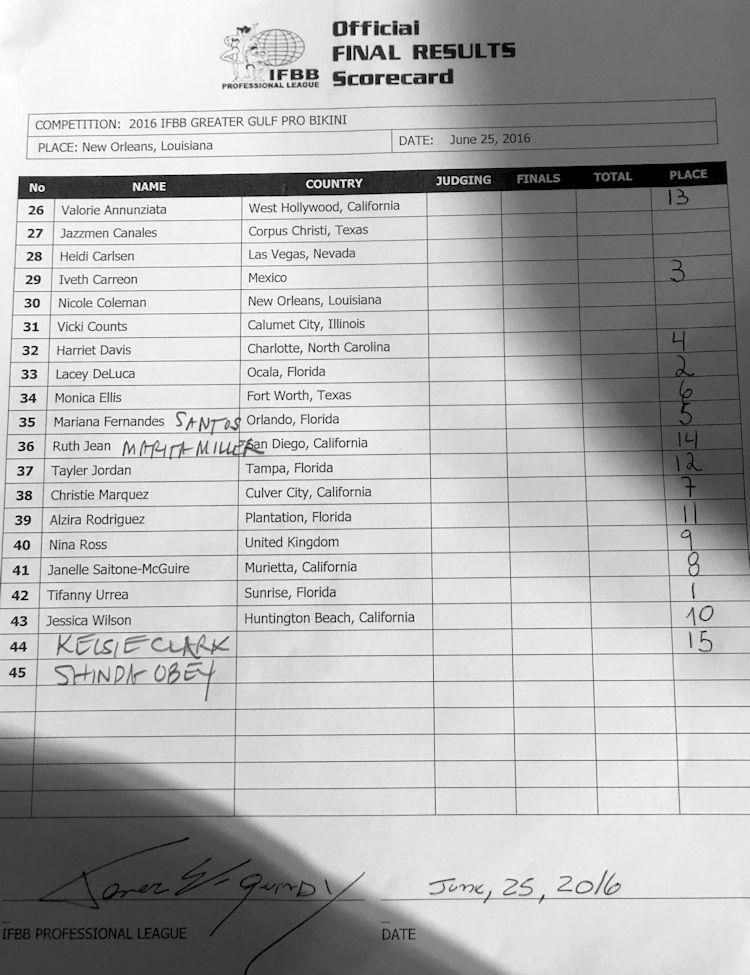 Official
FINAL RESULTS
Scorecard
IFBB
PROFESSIONAL LEAGUE
COMPETITION: 2016 IFBB GREATER GULF PRO BIKINI
PLACE: New Orleans, Louisiana DATE: June 25, 2016
No NAME COUNTRY JUDGING FINALS TOTAL PLACE
26 Valorie Annunziata West Hollywood, California 13
27 Jazzmen Canales Corpus Christi, Texas
28 Heidi Carlsen Las Vegas, Nevada
29 Iveth Carreon Mexico 3
30 Nicole Coleman New Orleans, Louisiana
31 Vicki Counts Calumet City, Illinois
32 Harriet Davis Charlotte, North Carolina 4
33 Lacey DeLuca Ocala, Florida 2
34 Monica Ellis Fort Worth, Texas 6
35 Mariana Fernandes SANTOS Orlando, Florida 5
36 Ruth Jean MARITA MILLER San Diego, California 14
37 Tayler Jordan Tampa, Florida 12
38 Christie Marquez Culver City, California 7
39 Alzira Rodriguez Plantation, Florida 11
40 Nina Ross United Kingdom 9
41 Janelle Saitone-McGuire Murietta, California 8
42 Tifanny Urrea Sunrise, Florida 1
43 Jessica Wilson Huntington Beach, California 10
44 KELSIE CLARK 15
45 SHINDA OBEY
June, 25, 2016
IFBB PROFESSIONAL LEAGUE DATE